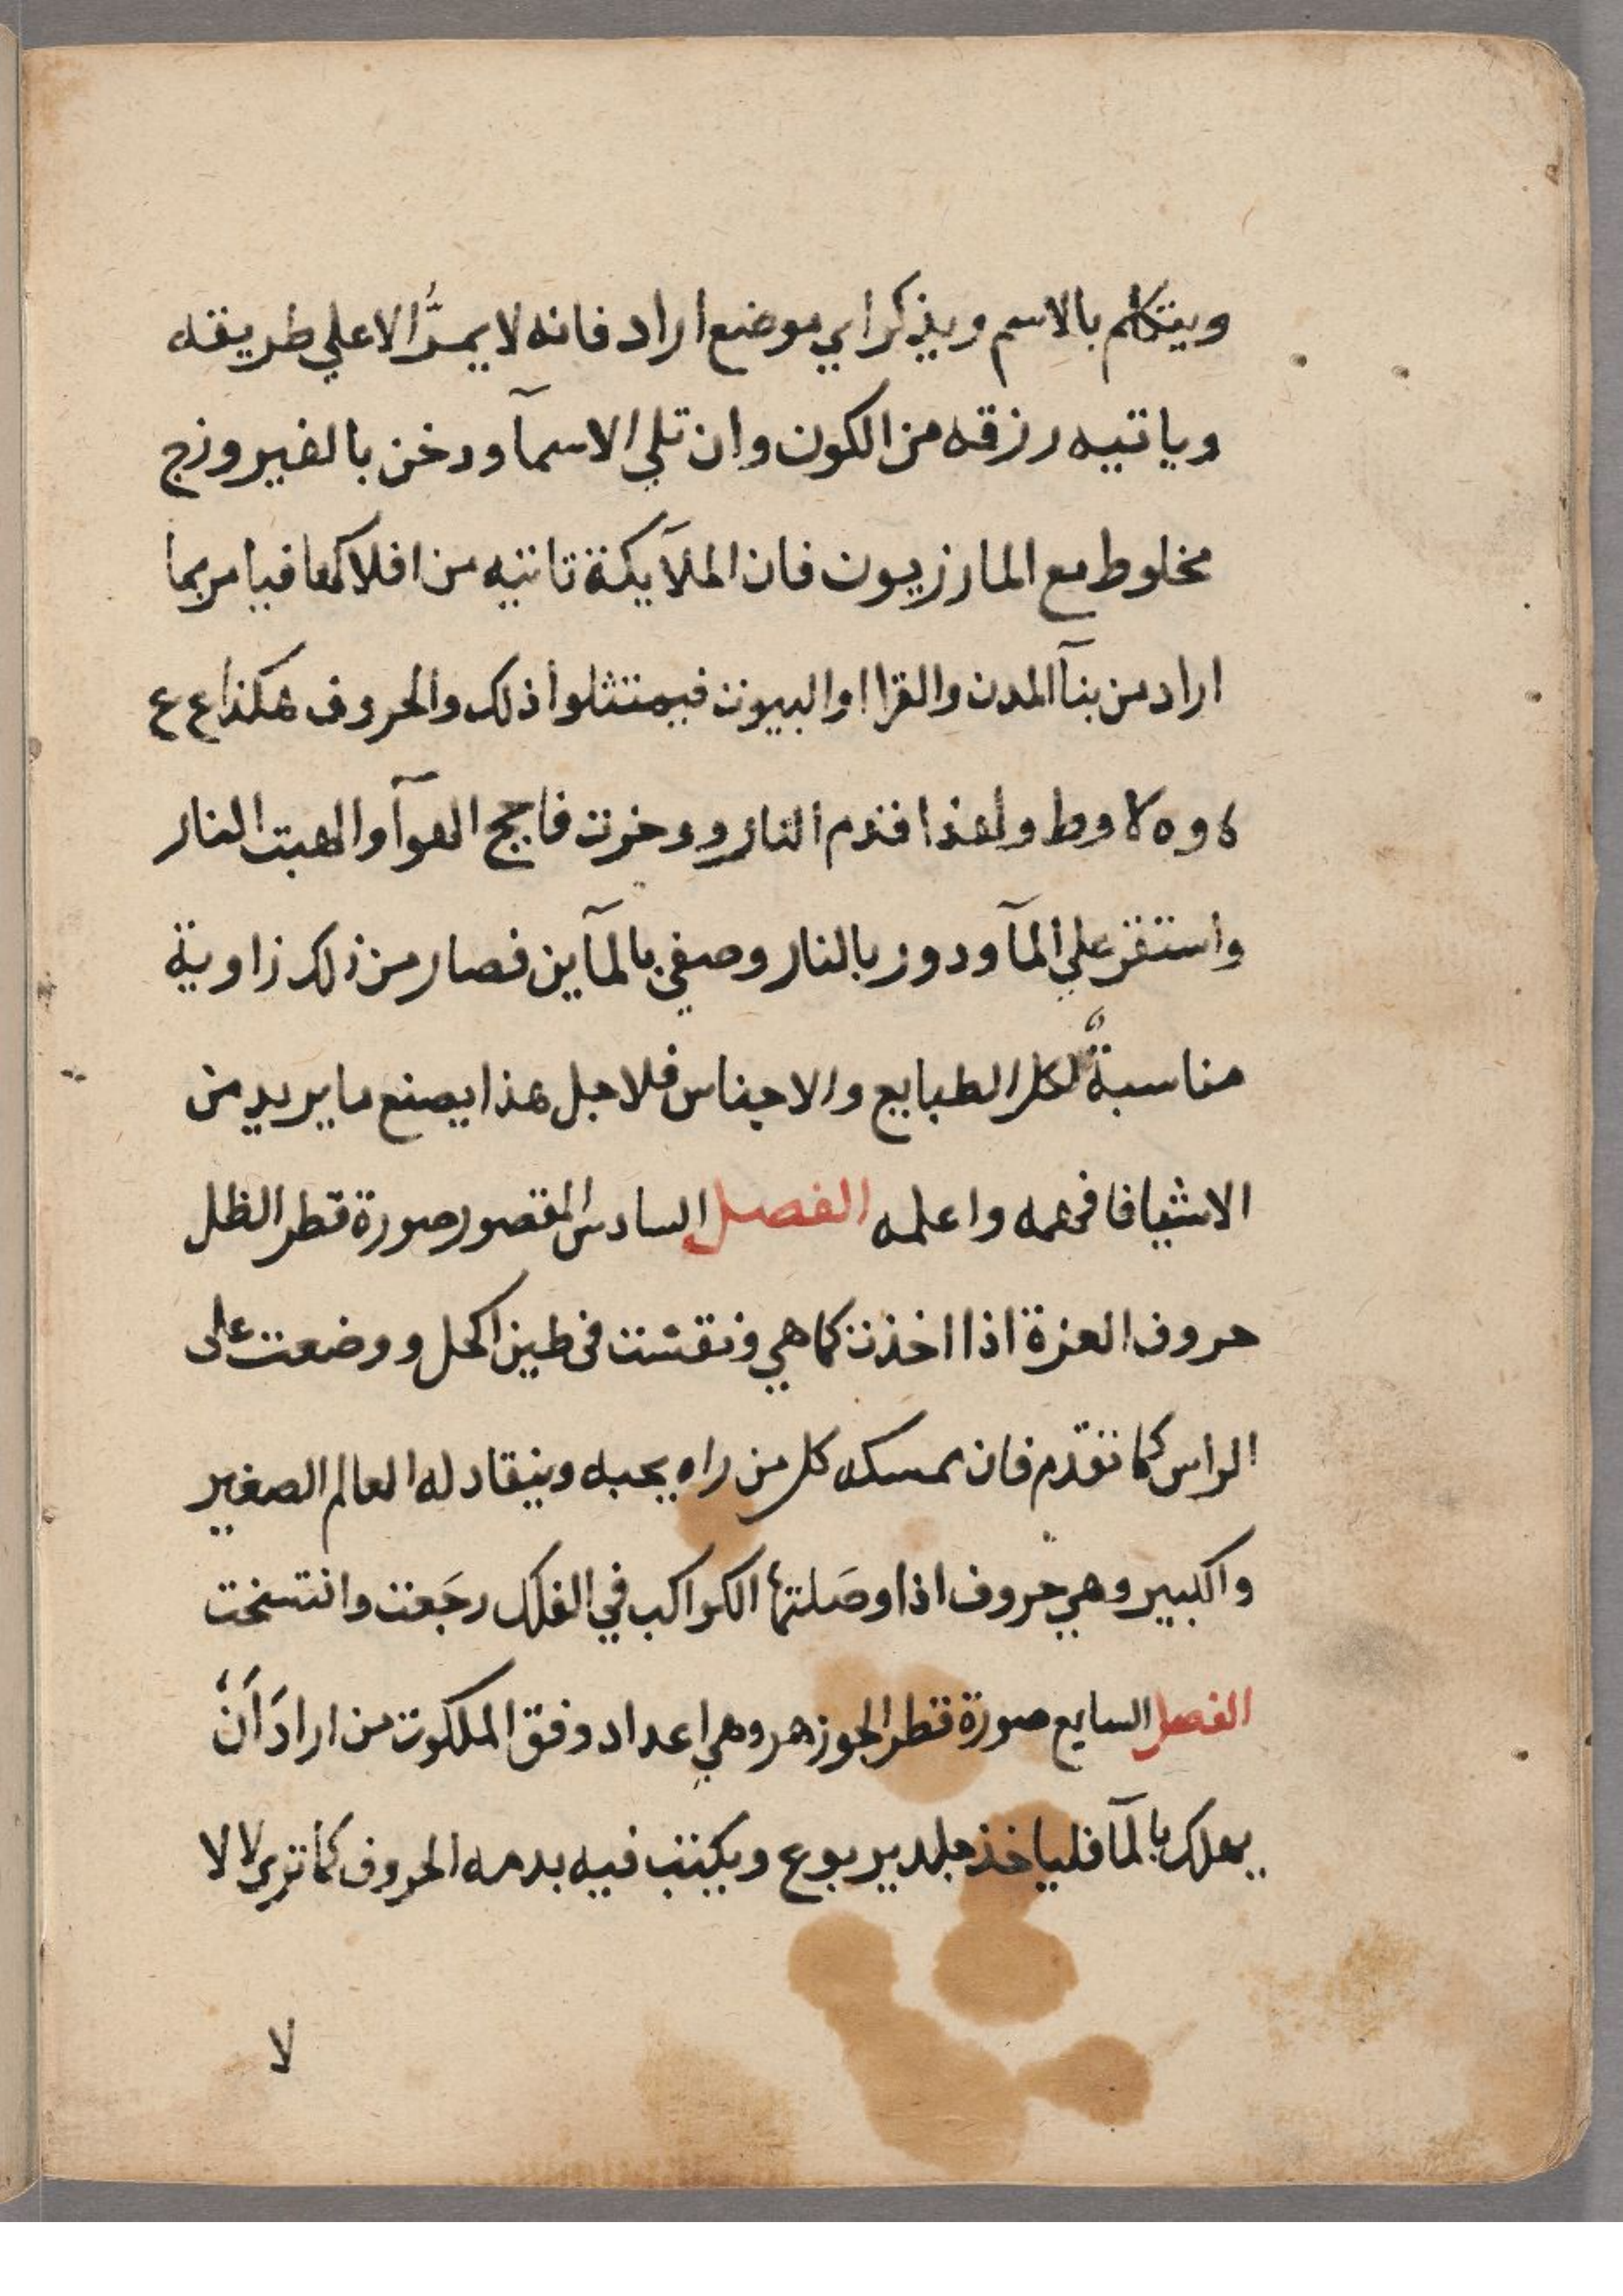 ويتكلم بالاسم ويذكر اي موضع اراد فانه لا يمرُّ الا علي طريقه
وياتيه رزقه من الكون وان تلي الاسمآ ودخن بالفيروزج
مخلوط مع المازريون فان الملآيكة تاتيه من افلاكها فيامر بما
اراد من بنآ المدن والقرا او البيوت فيمتثلوا ذلك والحروف هكذا ع ع
ولهذا قدم النار ودخنت فاجج الهوآ والهبت النار
واستقر علي المآ ودور بالنار وصفي بالمآين فصار من ذلك زاوية
مناسبةٌ لكل الطبايع والاجناس فلاجل هذا يصنع ما يريد من
الاشيا فافهمه واعلمه الفصل السادس المقصور صورة قطر الظل
حروف العزة اذا اخذت كما هي ونقشت في طين الحل ووضعت على
الراس كما تقدم فان يمسكه كل من راه يحبه وينقاد له العالم الصغير
والكبير وهي حروف اذا وصَلتها الكواكب في الفلك رجَعت وانتسخت
الفصل السابع صورة قطر الجوزهر وهي اعداد وفق الملكوت من ارادَ اَنْ
يهلك بالمآ فلياخذ جلد يربوع ويكتب فيه بدمه الحروف كما تري لا لا
لا